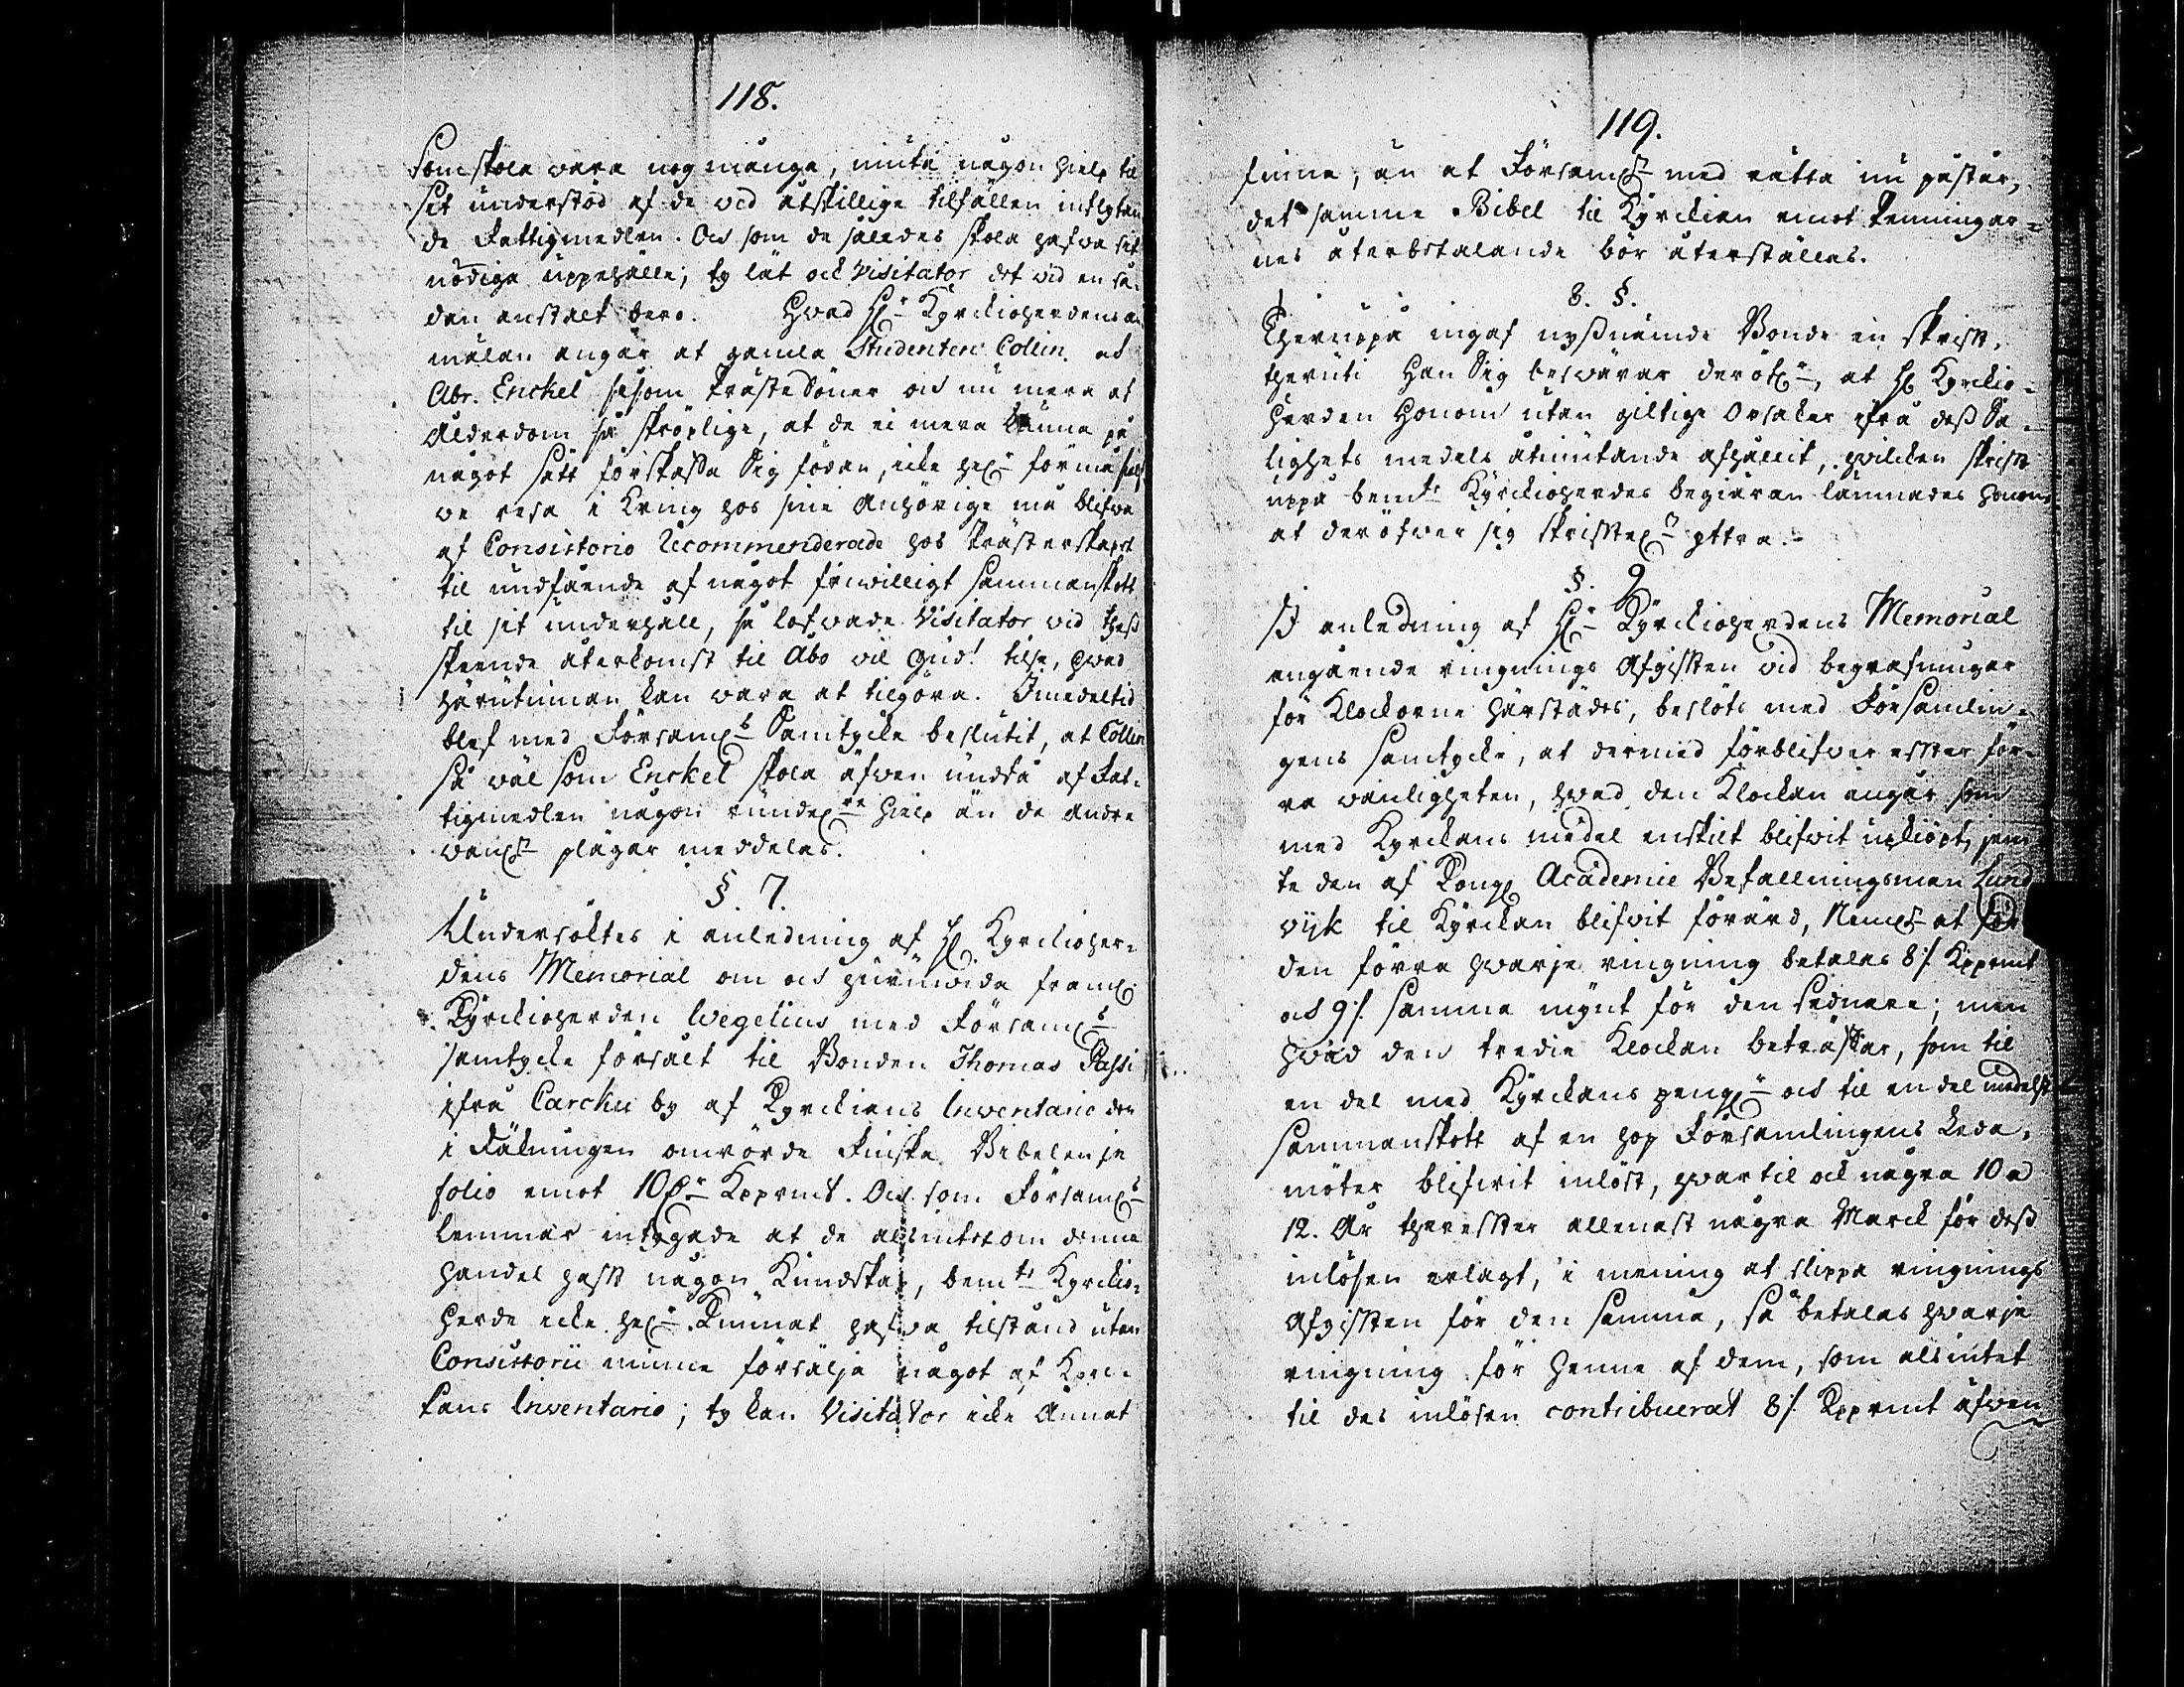 118.
som skola vara nog många, niuta någon hielp til
sit understöd af de vid åtskillige tilfällen inflytan
de Fattigmedlen. Och som de således skola hafva sit
nödiga uppehälle; ty lät ock Visitator det vid en så-
dan anstalt bero. Hvad Hr Kyrckioherdens an
mälan angår at gamla Studenten Collin och
Abr. Enckel såsom Prästesöner och nu mera af
Ålderdom så skröplige, at de ei mera kunna på
något sätt förskaffa sig födan, icke heller förmå
ve resa i kring hos sine Anhörige må blifva
af Consistorio Recommenderade hos Prästerskapet
til undfående af något friwilligt sammanskott
til sit underhåll, så lofvade Visitator vid thess
skeende återkomst til Åbo vil Gud! tilse, hvad
härutinnan kan vara at tilgöra. Imedlertid
blef med Församl:s Samtycke beslutit, at Collin
så väl som Enckel skola äfven undfå af Fat-
tigmedlen någon hielp än de andre
vanl:n plägar meddelas.
§. 7.
Undersöktes i anledning af H: Kyrckioher-
dens Memorial om och huruvida framl:
Kyrckioherden Wegelius med Församl:s
samtycke försålt til Bonden Thomas Passi
ifrå Carcku by af Kyrckians Inventario den
i Räkningen omrörde Finska Bibelen in
folio emot 10 Dr Kopprmt. Och som Församl:s
lemmar intygade at de alsintet om denna
handel haft någon Kundskap, bem:te Kyrckio-
herde icke hel:r kunnat hafva tilstånd utan
Consistorii minne försälja något af Kyrc-
kans Inventario; ty kan Visitator icke Annat
119.
finna, än at Församl:n med rätta nu påstår,
det samme Bibel til Kyrckian emot Penningar-
nes återbetalande bör återställas.
8. §.
Theruppå ingaf nyssnämde Bonde en skrift,
theruti Han Sig besvärar deröf:r, at H: Kyrckio-
herden Honom utan giltige Orsaker ifrå dess Sa-
lighets medels åtniutande afhållit, hvilcken skrift
uppå bem:te Kyrckioherdes begiäran lämnades honom
at deröfver sig skriftel:n yttra.
§. 9
I anledning af Hr Kyrckioherdens Memorial
angående ringnings Afgiften vid begrafningar
för Klockorne härstädes, beslöts med Församlin-
gens samtycke, at dermed förblifver efter för-
ra vanligheten, hvad den Klockan angår som
med Kyrckans medel enskilt blifvit upkiöpt, jem
te den af Kongl: Academie Befallningsman Lund
vijk til Kyrckan blifvit förärd, Neml:n at för
den förra hvarje ringning betalas 8 /. Kopprmt
och 9 /. samma mynt för den sednare; men
hvad den tredie Klockan beträffar, som til
en del med Kyrckans peng:r och til en del medelst
sammanskott af en hop Församlingens Leda-
möter blifvit inlöst, hvartil ock några 10 a
12. År therefter allenast några Marck för dess
inlösen erlagt, i mening at slippa ringnings
Afgiften för den samma, så betalas hvarje
ringning för henne af dem, som alsintet
til des inlösen contribuerat 8 /. Kopprmt äfven